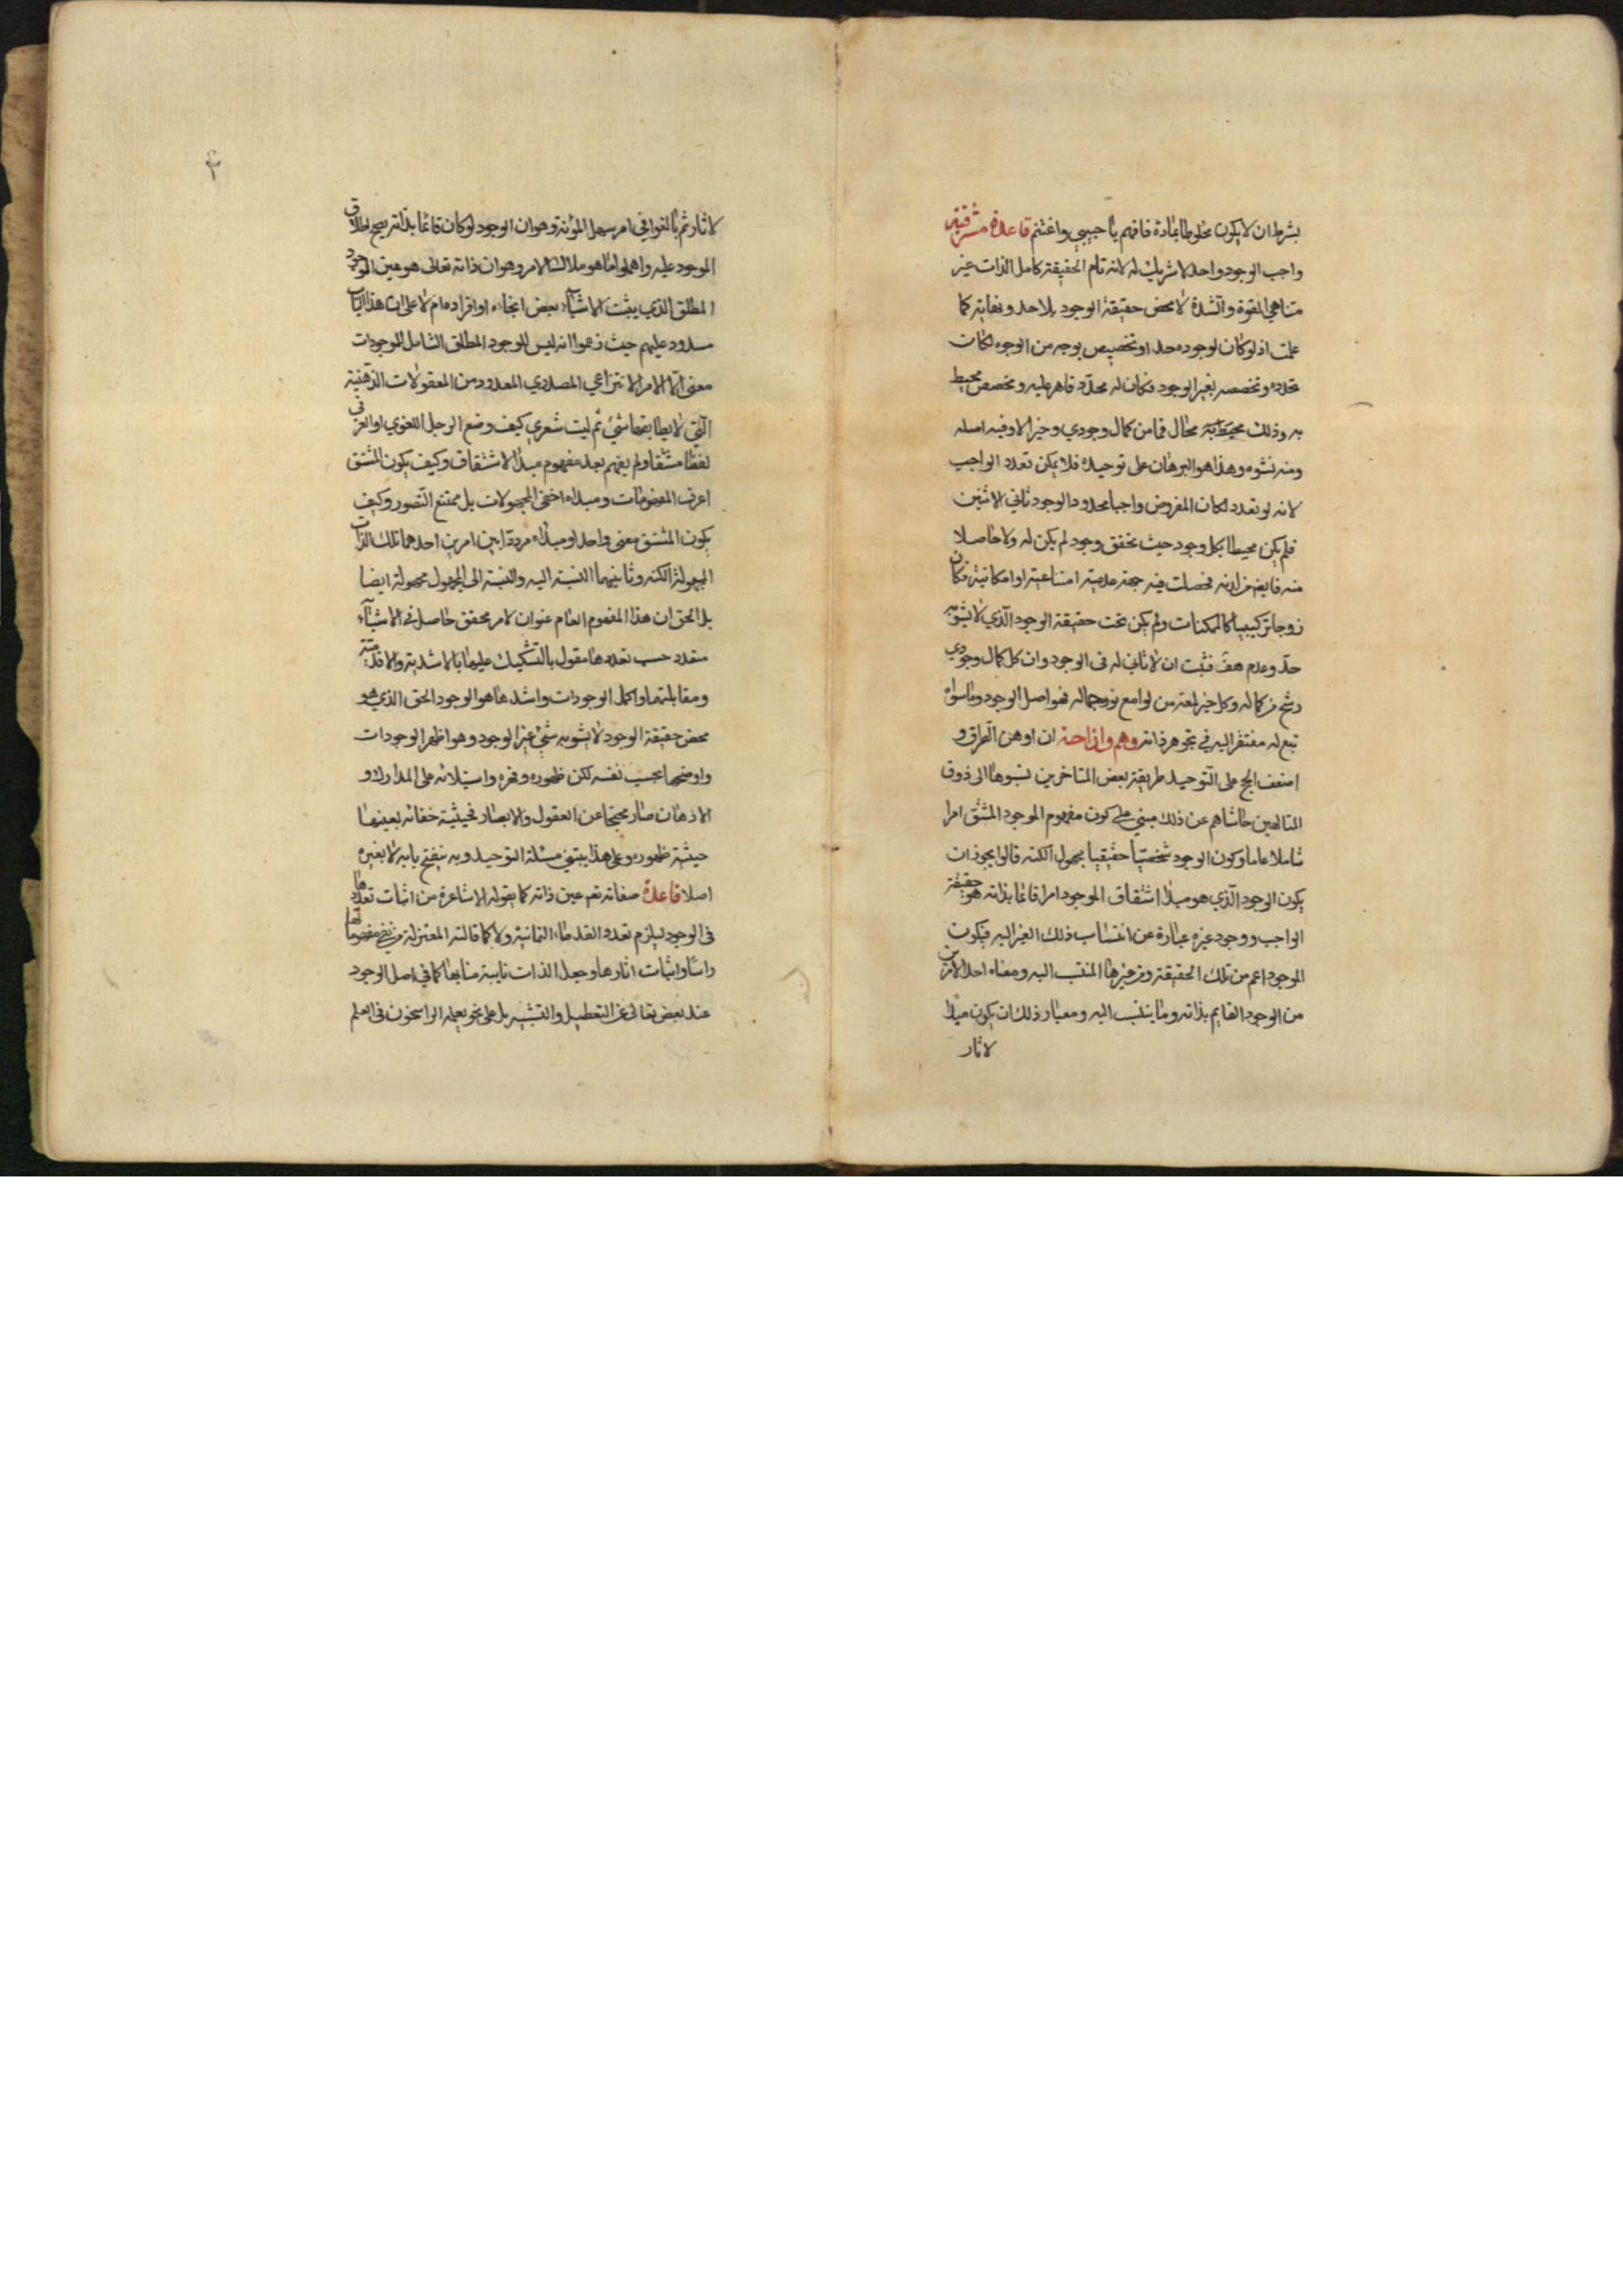 بشرط ان لا يكون مخلوطا بمادة فافهم يا حبيبي واغتنم قاعدة مشرقية
واجب الوجود واحد لا شريك له لانه تام الحقيقة كامل الذات غير
متناهي القوة والشدة لا محض حقيقة الوجود بلا حد ونهاية كما
علمت اذ لو كان لوجوده حد او تخصيص بوجه من الوجوه لكان
تحدده وتخصصه بغير الوجود فكان له محدد قاهر عليه ومخصص محيط
به وذلك محال فما من كمال وجودي وخير الا وفيه اصله
ومنه نشوه وهذا هو البرهان على توحيده فلا يمكن تعدد الواجب
لانه لو تعدد لكان المفروض واجبا محدود الوجود ثاني الاثنين
فلم يكن محيطا بكل وجود حيث تحقق وجود لم يكن له ولا حاصلا
منه فايض من لدنه فحصلت فيه جهة عدمية امتناعية او امكانية فكان
زوجا تركيبيا كالممكنات ولم يكن تحت حقيقة الوجود الذي لا يشوبه
حد وعدم هف فثبت ان لا ثاني له في الوجود وان كل كمال وجودي
رشح من كماله وكل خير لمعة من لوامع نور جماله فهو اصل الوجود وما سواه
تبع له مفتقر اليه في تجوهر ذاته وهم وازاحة ان اوهن الطرق و
اضعف الحج على التوحيد طريقة بعض المتاخرين نسبوها الى ذوق
المتالهين حاشاهم عن ذلك مبني على كون مفهوم الموجود المشتق امرا
شاملا عاما وكون الوجود شخصيا حقيقيا مجهول الكنه قالوا يجوز ان
يكون الوجود الذي هو مبدا اشتقاق الموجود امرا قائما بذاته هو حقيقة
الواجب ووجود غيره عبارة عن انتساب ذلك الغير اليه فيكون
الموجود اعم من تلك الحقيقة ومن غيرها المنتسب اليه ومعناه احد الامرين
من الوجود القايم بذاته وما ينتسب اليه ومعيار ذلك ان يكون مبدا
لاثار
لاثار ثم بالغوا في امر سهل المؤنة وهو ان الوجود لو كان قائما بذاته يصح اطلاق
الموجود عليه واهملوا ما هو ملاك الامر وهو ان ذاته تعالى هو عين الوجود
المطلق الذي يثبت الاشياء بعض انحاءه او افراده ام لا على ان هذا الباب
مسدود عليهم حيث زعموا انه ليس للوجود المطلق الشامل للموجودات
معنى الا الامر الانتزاعي المصدري المعدود من المعقولات الذهنية
التي لا يطابقها شيء ثم ليت شعري كيف وضع الرجل اللغوي او العرفي
لفظا مشتقا ولم يفهم بعد مفهوم مبدا الاشتقاق وكيف يكون المشتق
اعرف المفهومات ومبداه اخفى المجهولات بل ممتنع التصور وكيف
يكون المشتق معنى واحدا ومبداه مرددا بين امرين احدهما تلك الذات
المجهولة الكنه وثانيهما النسبة اليه والنسبة الى المجهول مجهولة ايضا
بل الحق ان هذا المفهوم العام عنوان لامر محقق حاصل في الاشياء
متعدد حسب تعددها مقول بالتشكيك عليها بالاشدية والاقدمية
ومقابلتهما واكمل الوجودات واشدها هو الوجود الحق الذي هو
محض حقيقة الوجود لا يشوبه شيء غير الوجود وهو اظهر الوجودات
واوضحها بحسب نفسه لكن ظهوره وقهره واستيلائه على المدارك و
الاذهان صار محتجبا عن العقول والابصار فحيثية خفائه بعينها
حيثية ظهوره وعلى هذا يبتني مسئلة التوحيد وبه ينفتح بابه لا بغيره
اصلا قاعدة صفاته تعم عين ذاته كما يقوله الاشاعرة من اثبات تعددها
في الوجود ليلزم تعدد القدماء الثمانية ولا كما قالته المعتزلة من نفي مفهوماتها
راسا واثبات اثارها وجعل الذات نايبة منابها كما في اصل الوجود
عند بعض تعالى عن التعطيل والتشبيه بل على نحو يعلمه الراسخون في العلم